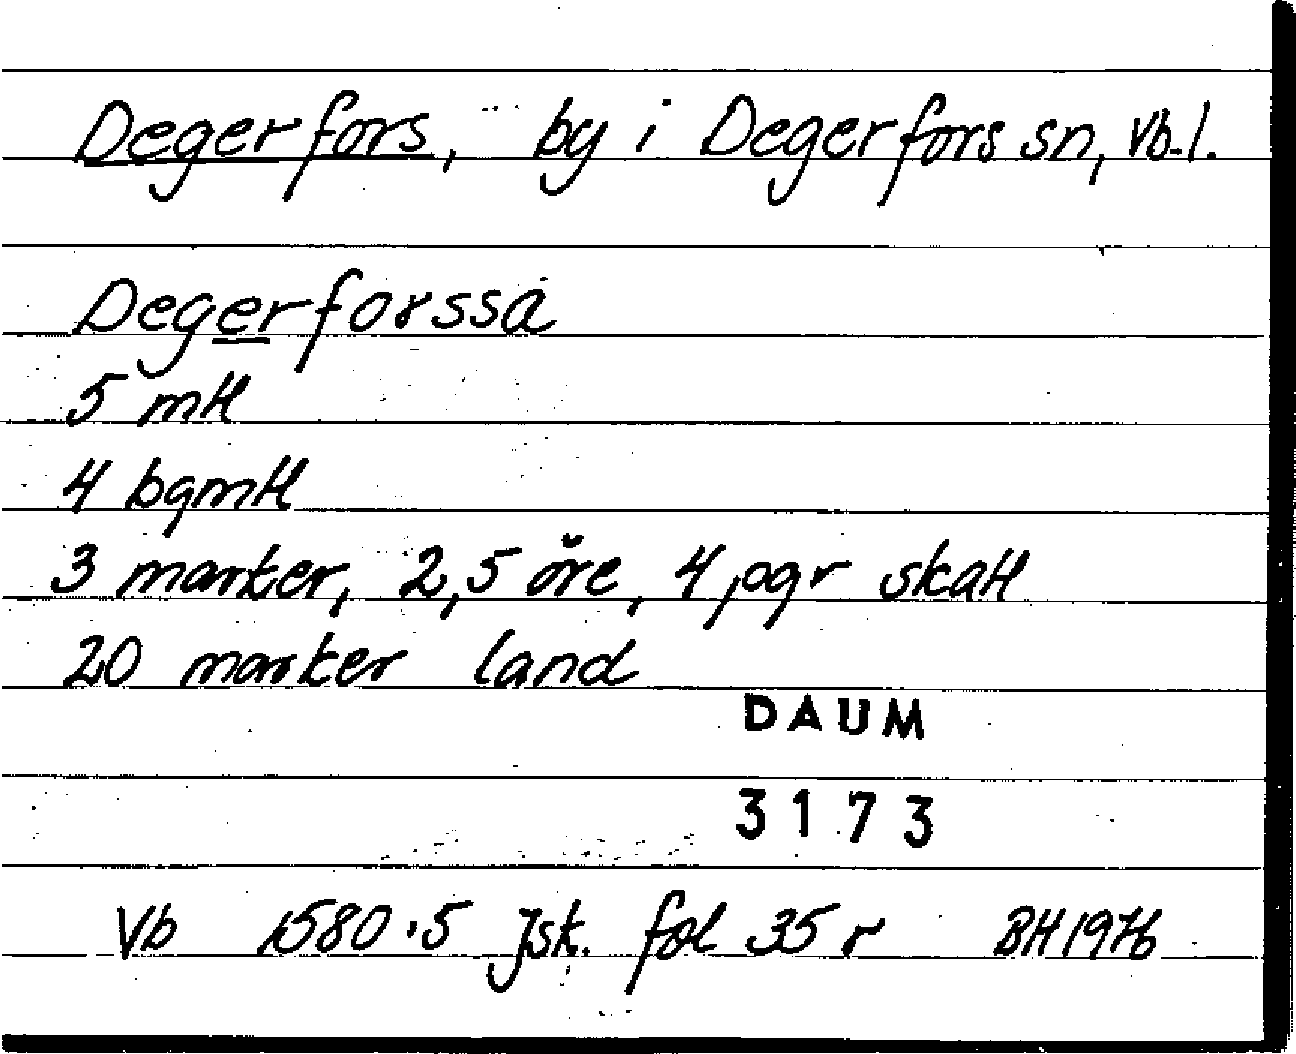 Degerfors, by i Degerfors sn, Vb.l.
Degerforsså
5 mtl
4 bgmtl
3 marker, 2,5 öre, 4 pgr skatt
20 marker land
DAUM
3173
Vb 1580:5 Jsk. fol 35 r BH 1976